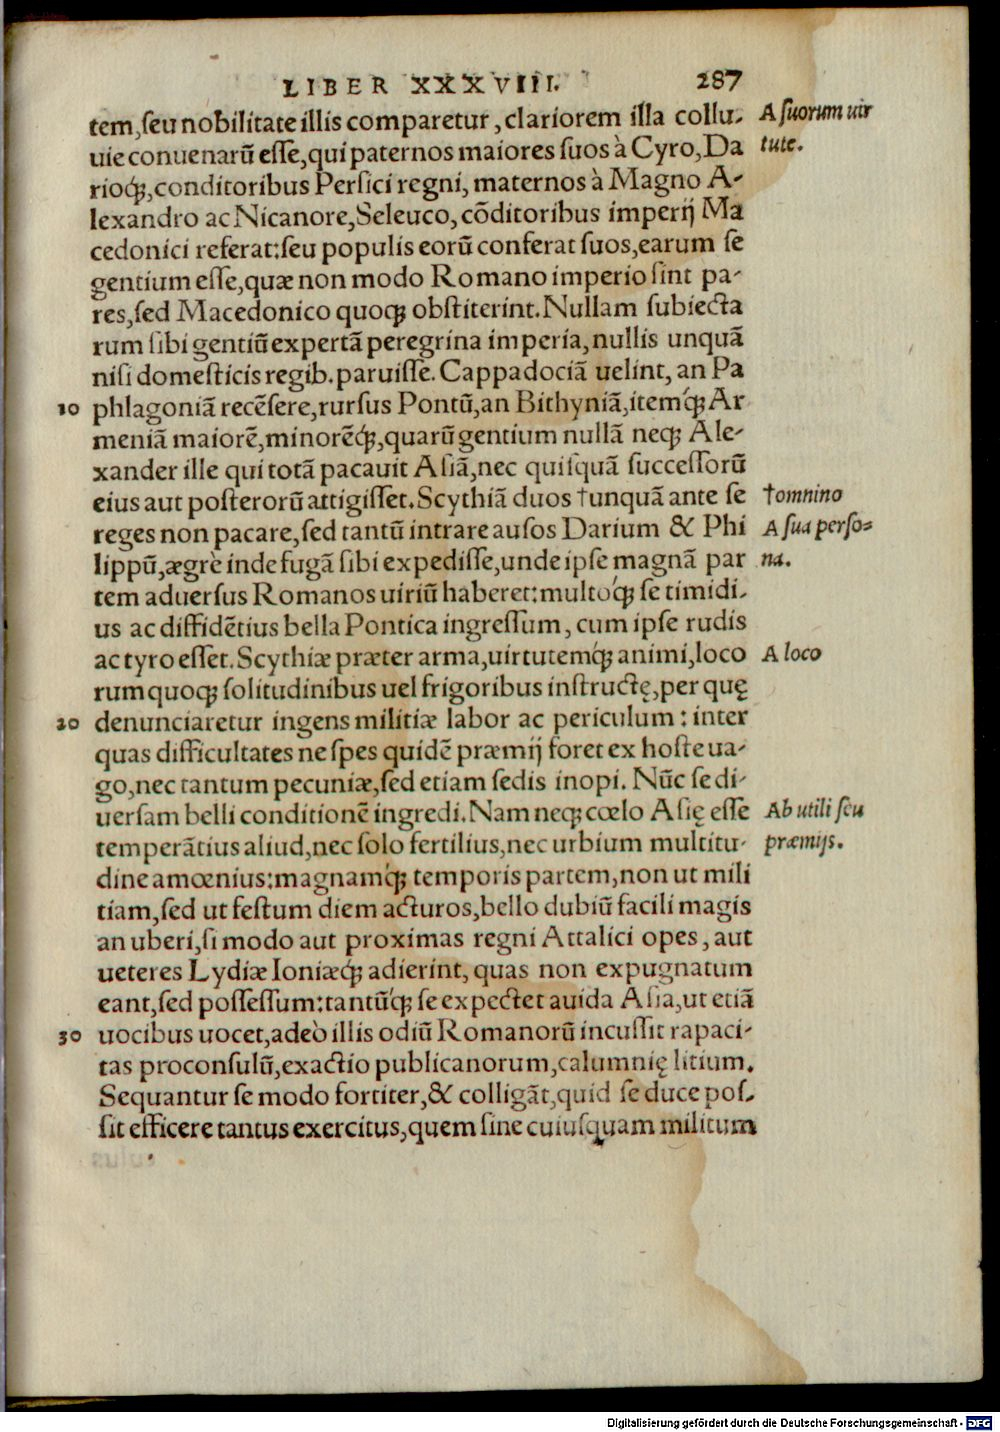 LIBER XXXVIII. 287
tem,seu nobilitate illis comparetur,clariorem illa collu-
uie conuenarū esse,qui paternos maiores suos à Cyro,Da
rioq́;,conditoribus Persici regni, maternos à Magno A-
lexandro ac Nicanore,Seleuco, cōditoribus imperij Ma
cedonici referat:seu populis eorū conferat suos,earum se
gentium esse,quæ non modo Romano imperio sint pa-
res,sed Macedonico quoq; obstiterint.Nullam subiecta
rum sibi gentiū expertā peregrina imperia, nullis unquā
nisi domesticis regib.paruisse.Cappadociā uelint, an Pa
10 phlagoniā recēsere,rursus Pontū,an Bithyniā,itemq́; Ar
meniā maiorē,minorēq́;,quarū gentium nullā neq; Ale-
xander ille qui totā pacauit Asiā,nec quisquā successorū
eius aut posterorū attigisset.Scythiā duos †unquā ante se
reges non pacare,sed tantū intrare ausos Darium & Phi
lippū,ægrè inde fugā sibi expedisse,unde ipse magnā par
tem aduersus Romanos uiriū haberet:multoq́; se timidi-
us ac diffidētius bella Pontica ingressum, cum ipse rudis
ac tyro esset.Scythiæ præter arma,uirtutemq́; animi,loco
rum quoq; solitudinibus uel frigoribus instructę,per quę
20 denunciaretur ingens militiæ labor ac periculum: inter
quas difficultates ne spes quidē præmij foret ex hoste ua-
go,nec tantum pecuniæ,sed etiam sedis inopi. Nūc se di-
uersam belli conditionē ingredi.Nam neq; cœlo Asię esse
temperātius aliud,nec solo fertilius,nec urbium multitu-
dine amœnius:magnamq́; temporis partem,non ut mili
tiam,sed ut festum diem acturos,bello dubiū facili magis
an uberi,si modo aut proximas regni Attalici opes, aut
ueteres Lydiæ Ioniæq́; adierint, quas non expugnatum
eant,sed possessum:tantūq́; se expectet auida Asia,ut etiā
30 uocibus uocet,adeò illis odiū Romanorū incussit rapaci-
tas proconsulū,exactio publicanorum,calumnię litium.
Sequantur se modo fortiter,& colligāt,quid se duce pos-
sit efficere tantus exercitus,quem sine cuiusquam militum
A suorum uir
tute.
†omnino
A sua perso=
na.
A loco
Ab utili seu
præmijs.
Digitalisierung gefördert durch die Deutsche Forschungsgemeinschaft - DFG